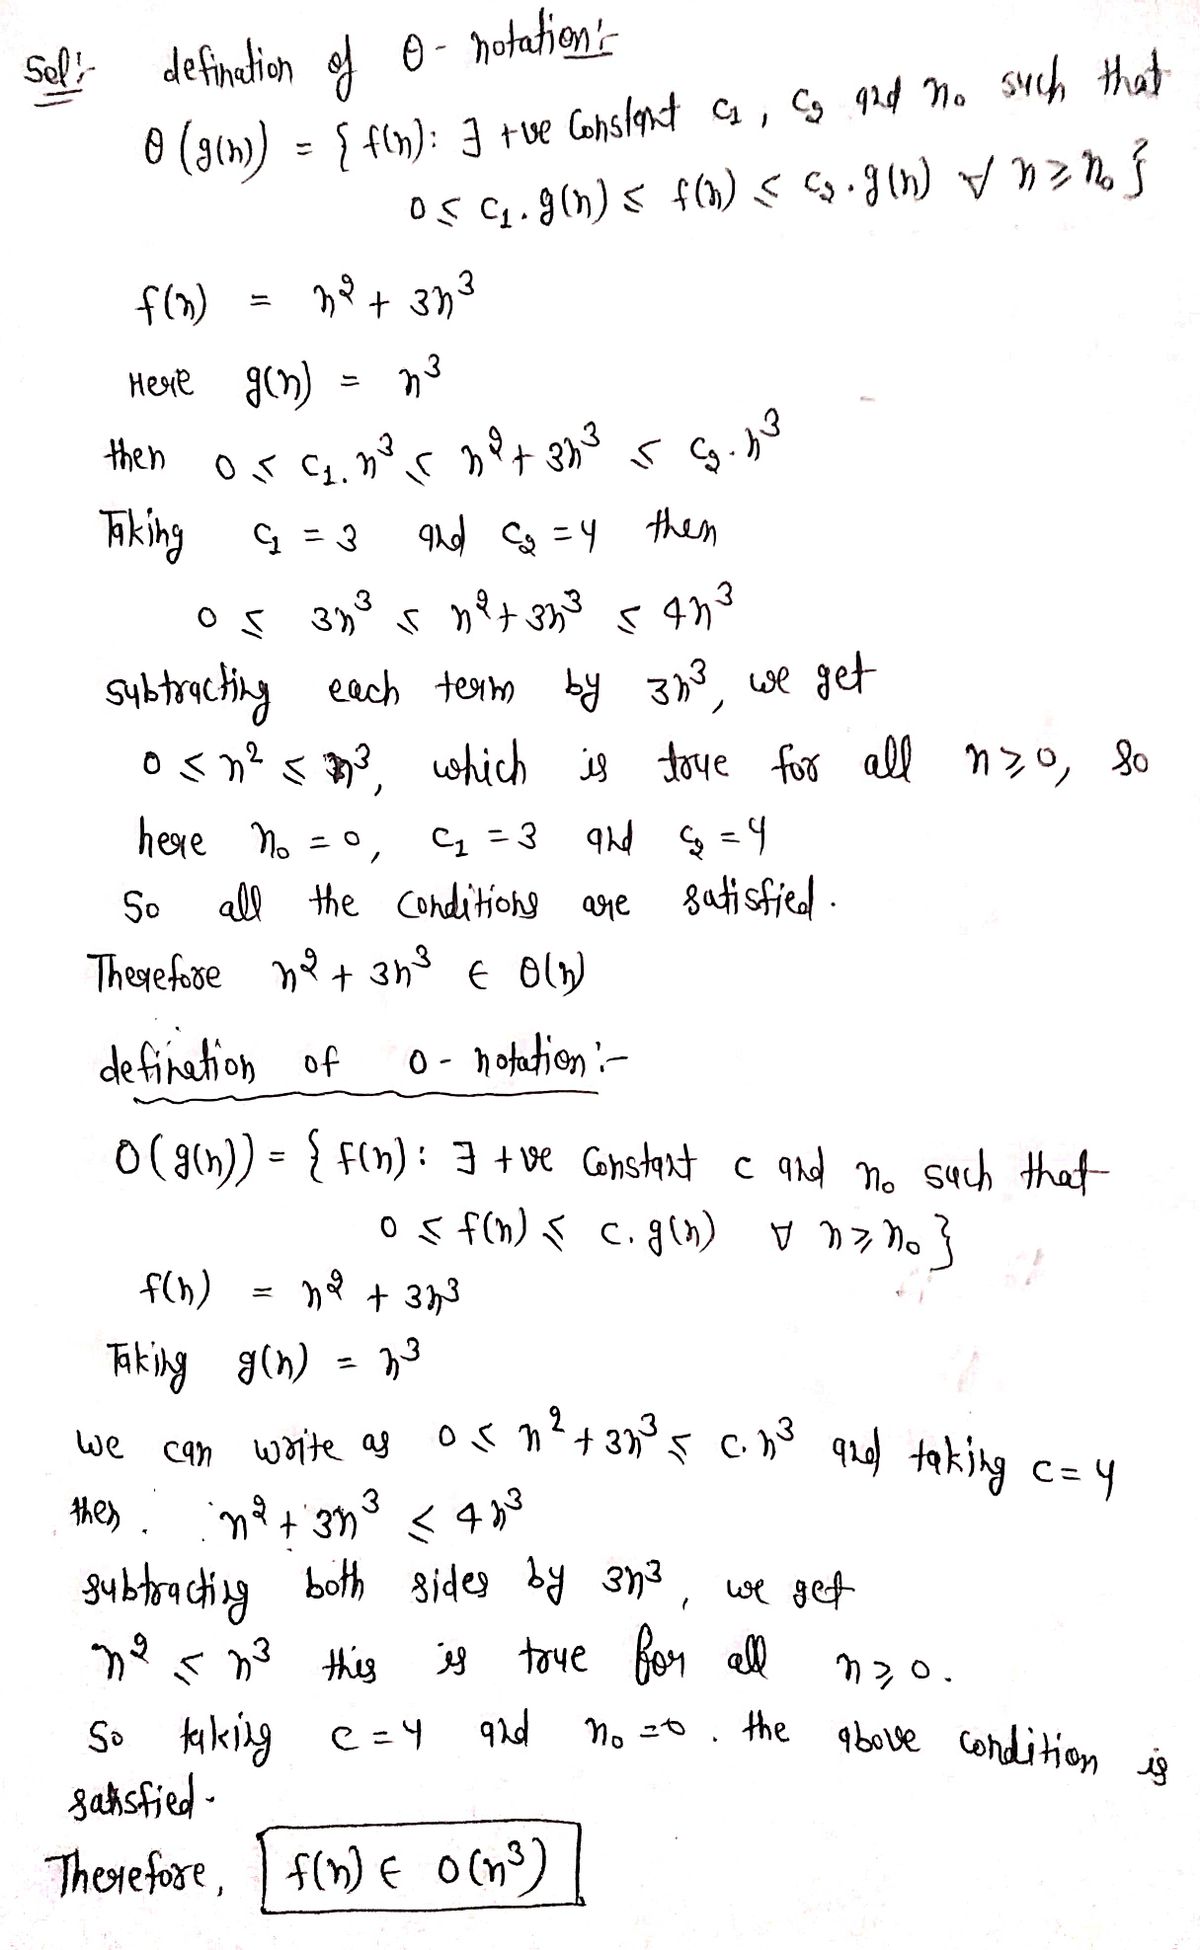 Sol:- defination of θ - notation:-
θ(g(n)) = { f(n): ∃ +ve Constant c₁, c₂ and n₀ such that
0 ≤ c₁.g(n) ≤ f(n) ≤ c₂.g(n) ∀ n ≥ n₀ }
f(n) = n² + 3n³
Here g(n) = n³
then 0 ≤ c₁.n³ ≤ n² + 3n³ ≤ c₂.n³
Taking c₁ = 3 and c₂ = 4 then
0 ≤ 3n³ ≤ n² + 3n³ ≤ 4n³
subtracting each term by 3n³, we get
0 ≤ n² ≤ n³, which is true for all n ≥ 0, so
here n₀ = 0, c₁ = 3 and c₂ = 4
So all the conditions are satisfied.
Therefore n² + 3n³ ∈ θ(n)
defination of O - notation:-
O(g(n)) = { f(n): ∃ +ve Constant c and n₀ such that
0 ≤ f(n) ≤ c.g(n) ∀ n ≥ n₀ }
f(n) = n² + 3n³
Taking g(n) = n³
We can write as 0 ≤ n² + 3n³ ≤ c.n³ and taking c = 4
then. n² + 3n³ ≤ 4n³
subtracting both sides by 3n³, we get
n² ≤ n³ this is true for all n ≥ 0.
So taking c = 4 and n₀ = 0. the above condition is
satisfied.
Therefore, f(n) ∈ O(n³)